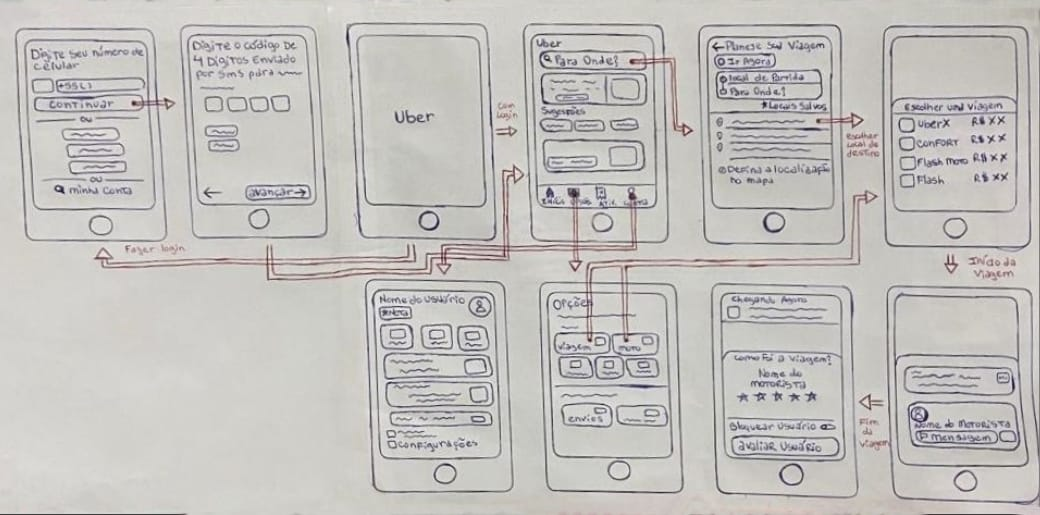 Digite seu número de
celular
(+55)
continuar
ou
ou
minha conta
Digite o código De
4 Dígitos Enviado
por sms para
←
avançar →
Uber
Com
Login
Uber
Para Onde?
Sugestões
Início
Opções
Ativ.
Conta
← Planeje sua Viagem
Ir Agora
Local de Partida
Para Onde?
★Locais Salvos
Defina a localização
no mapa
escolher
local de
destino
Escolher uma Viagem
UberX R$ XX
Confort R$ XX
Flash Moto R$ XX
Flash R$ XX
Fazer login
Início da
Viagem
Nome do usuário
★Nota
Configurações
Opções
viagem
moto
envios
Chegando Agora
Como Foi a viagem?
Nome do
motorista
★ ★ ★ ★ ★
Bloquear usuário
avaliar usuário
Fim
da
viagem
Nome do Motorista
mensagem